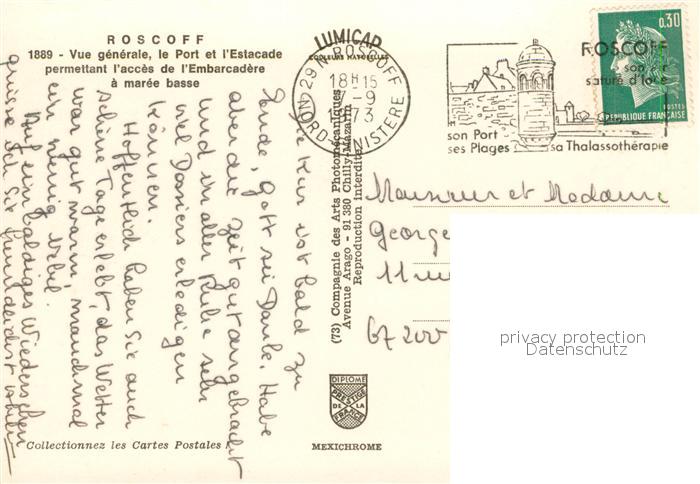 ROSCOFF
1889 - Vue générale, le Port et l'Estacade
permettant l'accès de l'Embarcadère
à marée basse
LUMICAP
COULEURS NATURELLES
29 N ROSCOFF
18H15
7-9
1973
NORD-FINISTERE
ROSCOFF
son air
saturé d'iode
son Port
ses Plages
sa Thalassothérapie
0,30
POSTES
REPUBLIQUE FRANÇAISE
Die Kur ist bald zu
Ende, Gott sei Danke. Habe
aber die Zeit gut angebracht
und in aller Ruhe sehr
viel Dossiers erledigen
können.
Hoffentlich haben Sie auch
schöne Tage erlebt, das Wetter
war gut warm, manchmal
ein wenig Nebel.
Auf ein baldiges Wiedersehen
grüsse ich Sie
(73) Compagnie des Arts Photomécaniques
Avenue Arago - 91 380 Chilly-Mazarin
Reproduction interdite
Monsieur et Madame
George
11 rue
67200
privacy protection
Datenschutz
DIPLOME
PRESTIGE
DE LA
FRANCE
MEXICHROME
Collectionnez les Cartes Postales